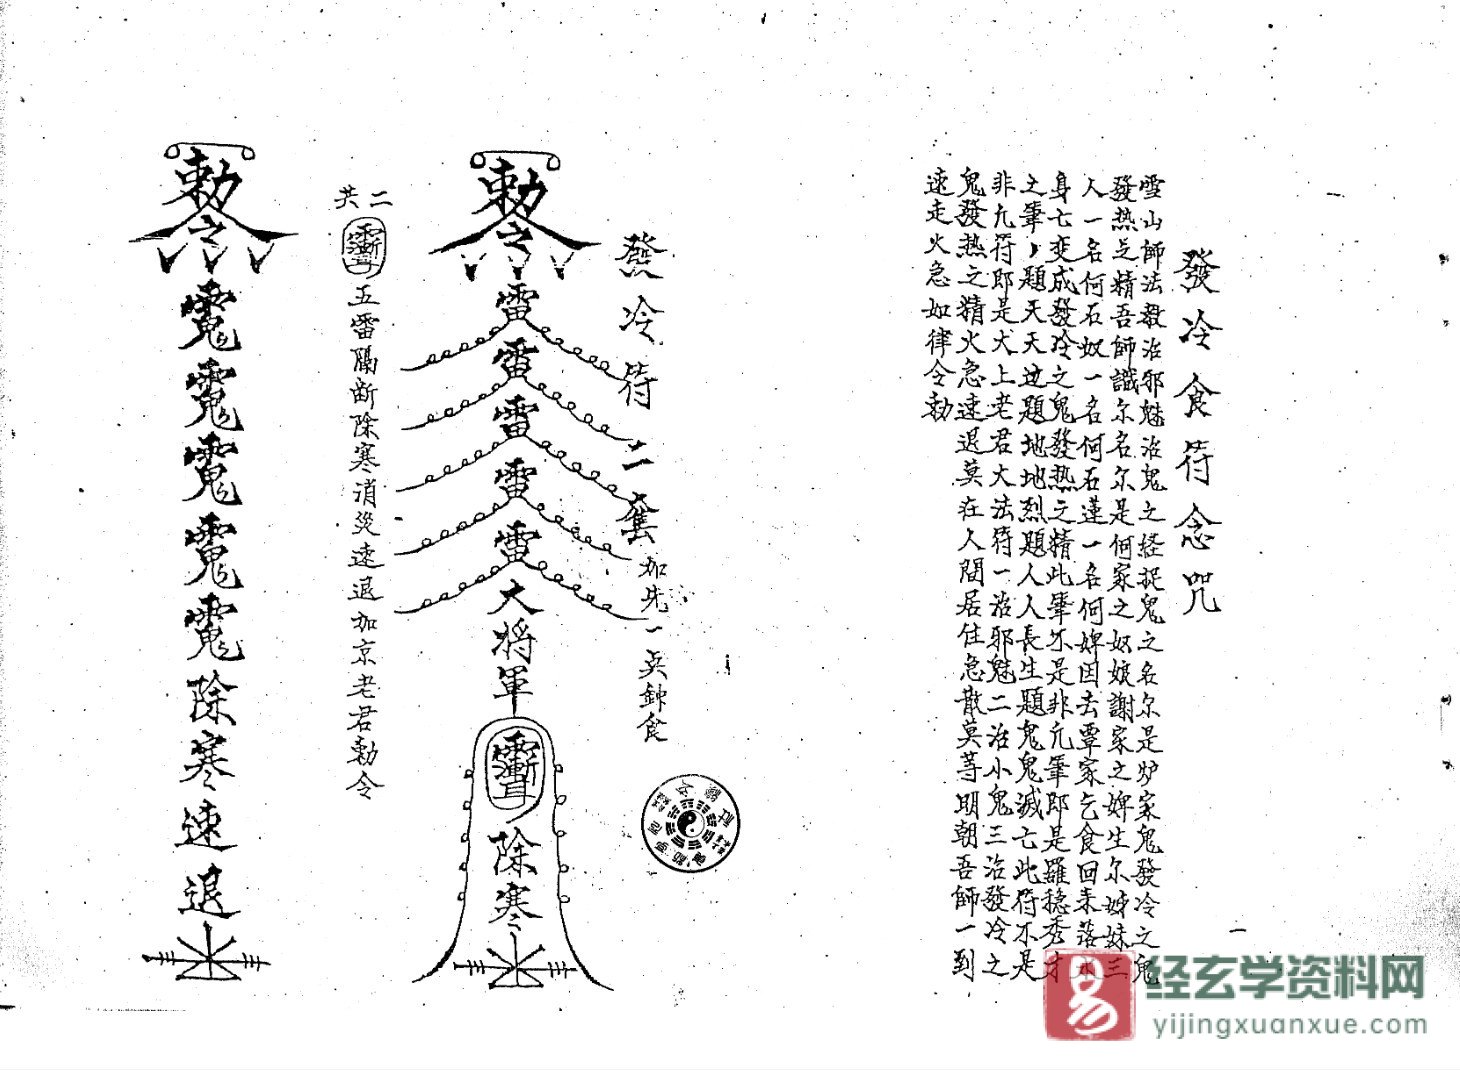 發冷食符念咒
雪山師法教治邪魅治鬼之経捉鬼之名尔是炉家鬼發冷之鬼
發热之精吾師識尔名尔是何家之奴娘謝家之婢生尔姊妹三
人一名何石奴一名何石蓮一名何婢因去覃家乞食回来落
身七变成發冷之鬼發热之精此筆不是非凡筆即是羅穏秀才
之筆題天天过題地地烈題人人長生題鬼鬼滅亡此符不是
非凡符即是太上老君大法符一治邪魅二治小鬼三治發冷之
鬼發热之精火急速退莫在人間居住急散莫等明朝吾師一到
速走火急如律令勅
發冷符二隻
加先一点鉢食
勅令
雷
雷
雷
雷
雷
大將軍
除寒
二共
五雷隔断除寒消災速退加京老君勅令
勅令
除寒速退
经玄学资料网
yijingxuanxue.com
易